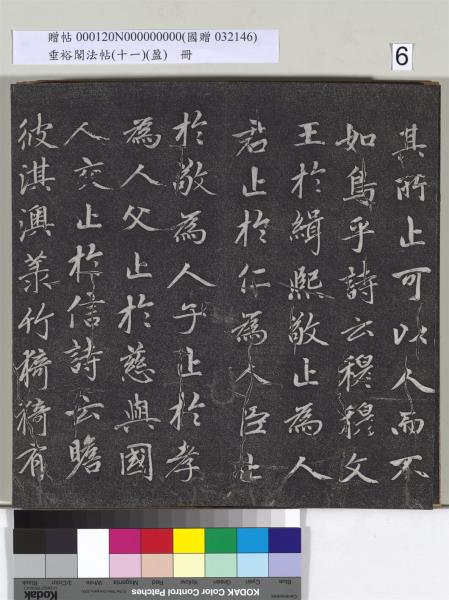 贈帖 000120N000000000(國贈 032146)
垂裕閣法帖(十一)(盈) 冊
6
其所止可以人而不
如鳥乎詩云穆穆文
王於緝熙敬止為人
君止於仁為人臣止
於敬為人子止於孝
為人父止於慈與國
人交止於信詩云瞻
彼淇澳菉竹猗猗有
Blue Cyan Green Yellow Red Magenta White 3/Color Black
Kodak KODAK Color Control Patches